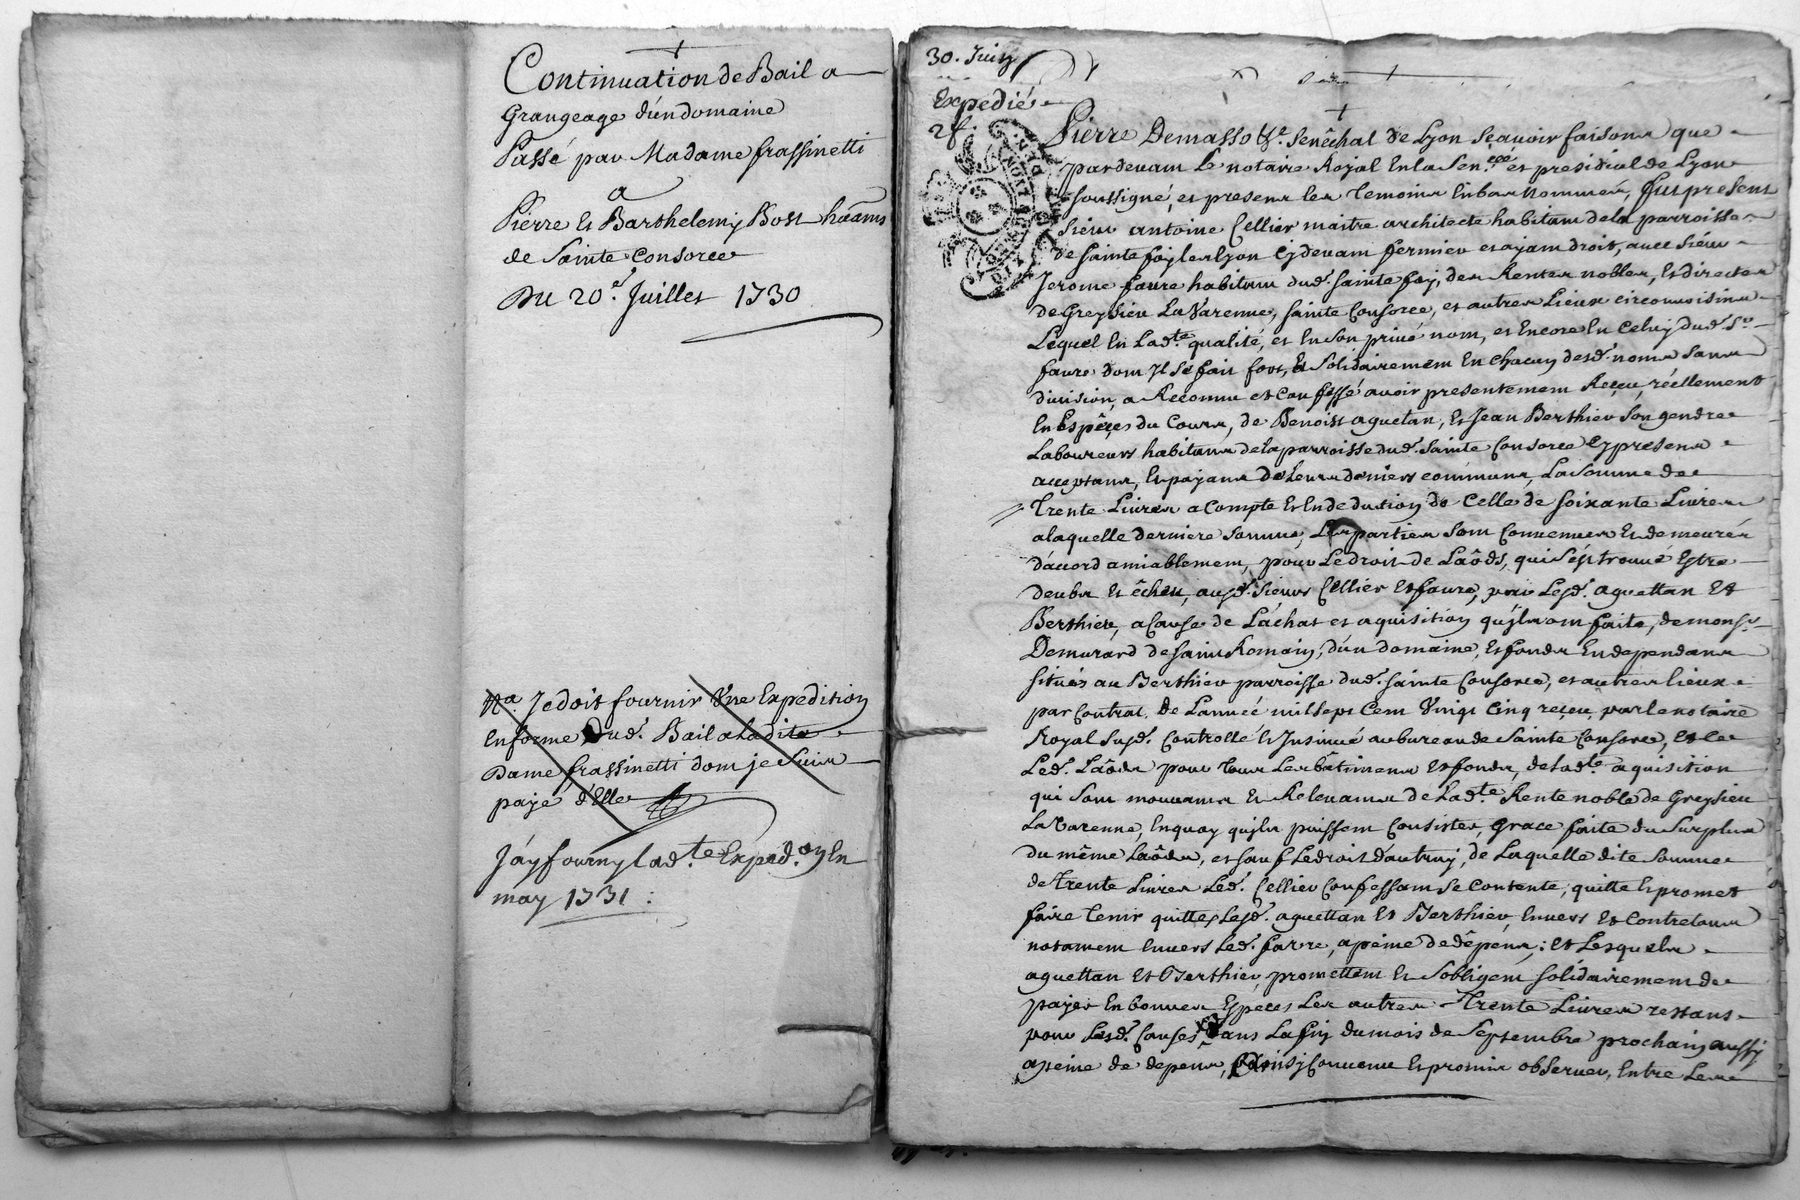 Continuation de Bail a
Grangeage d'un domaine
Passé par Madame frassinetti
a
Pierre et Barthelemy Bost
de Sainte Consorce
Du 20e. Juillet 1730
Na. Je doit fournir Une Expedition
En forme Dud. Bail a Ladite
Dame frassinetti dont je suis
payé d'Elle
J'ay fourny lad.te Exped.on En
may 1731 :
30. Juin
Expedié
2f.
Pierre Demasso &c. Senêchal de Lyon sçavoir faisons que
pardevant Le notaire Royal En la Sen.ée et presidial de Lyon
soussigné, et presens les Temoins En bas nommes, fut present
Sieur antoine Cellier maitre architecte habitant de la parroisse
de sainte foy les Lyon Cy devant fermier et ayant droit, avec sieur
Jerome faure habitant dud. sainte foy, des Rentes nobles, Et directes
de Greysieu La Varenne, sainte Consorce, et autres Lieux circonvoisins
Lequel En Lad.te qualité, et En son privé nom, et Encore En Celuy dud. Sr.
faure dont Il se fait fort, Et Solidairement En chacun desd. noms sans
division, a Reconnu et Confessé avoir presentement Reçeu, réellement
En Espêces du Cours, de Benoist aguetan, Et Jean Berthier Son gendre
Laboureurs habitans de la parroisse dud. Sainte Consorce Cy presens
acceptans, Et payans de Leurs deniers communs, La Somme de
Trente Livres a Compte Et En deduction de Celle de soixante Livres
a laquelle derniere somme, Les parties sont Convenues Et demeurés
d'accord amiablement, pour Le droit de Laôds, qui s'est trouvé Estre
deubs Et êcheu, ausd. Sieurs Cellier Et faure, par Lesd. aguettan Et
Berthier, a Cause de L'achat et aquisition qu'jls ont faite, de monsr.
Demurard de saint Romain, d'un domaine, Et fonds En dependans
situés au Berthier parroisse dud. sainte Consorce, et autres lieux
par Contrat de L'année mil sept Cent Vingt Cinq reçeu, par le notaire
Royal susd. Controllé Et Insinué au bureau de Sainte Consorce, Et ce
Led. Laôds pour tous Les bâtimens Et fonds, de lad.te aquisition
qui sont mouvans Et Relevans de Lad.te Rente noble de Greysieu
La Varenne, En quoy qu'jls puissent Consister, Grace faite du Surplus
du même Laôds, et sauf Le droit d'autruy, de Laquelle dite somme
de Trente Livres Led. Cellier Confessant se Contente, quitte Et promet
faire Tenir quittes Lesd. aguettan Et Berthier Envers Et Contre tous
notament Envers Led. favre, a peine de dêpens ; Et Lesquels
aguettan Et Berthier promettent Et S'obligent solidairement de
payer En bonnes Espèces Les autres Trente Livres restans
pour Lesd. Causes dans La fin du mois de Septembre prochain aussy
a peine de depens, Ainsy Convenu Et promis observer, Entre Les